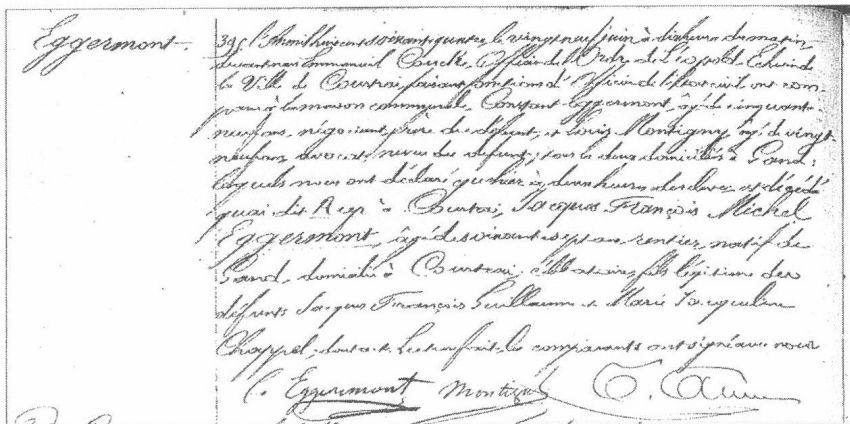 Eggermont.
395. L'an mil huit cent soixante quatre, le vingt neuf juin à dix heures du matin
devant nous Emmanuel Officier de l'Ordre de Léopold Echevin de
la Ville de Courtrai, faisant fonctions d'Officier de l'état civil, ont com-
paru à la maison communale Constant Eggermont, âgé de cinquante
neuf ans, négociant, frère du défunt, et Louis Montigny, âgé de vingt
neuf ans, avocat, neveu du défunt; tous les deux domiciliés à Gand:
lesquels nous ont déclaré qu'hier à deux heures de relevée est décédé
quai dit Reep à Courtrai, Jacques François Michel
Eggermont, âgé de soixante sept ans, rentier, natif de
Gand, domicilié à Courtrai, célibataire, fils légitime des
défunts Jacques François Guillaume et Marie Jacqueline
Chappel, dont acte. Lecture faite, les comparants ont signé avec nous
C. Eggermont Montigny